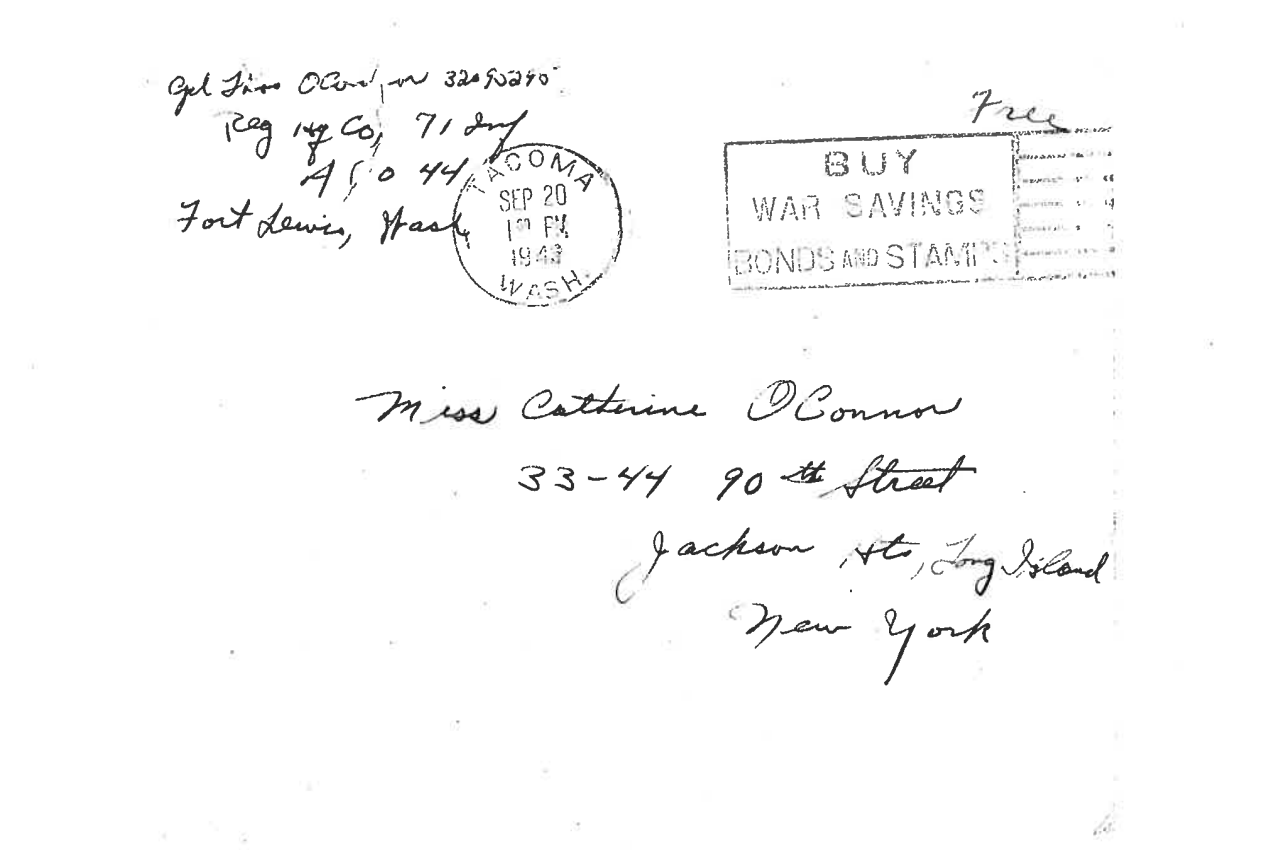 Cpl OConnor
Reg Hq Co, 71 Inf
APO 44
Fort Lewis, Wash
TACOMA
SEP 20
1943
WASH.
Free
BUY
WAR SAVINGS
BONDS AND STAMPS
Miss Catherine OConnor
33-44 90th Street
Jackson Hts, Long Island
New York